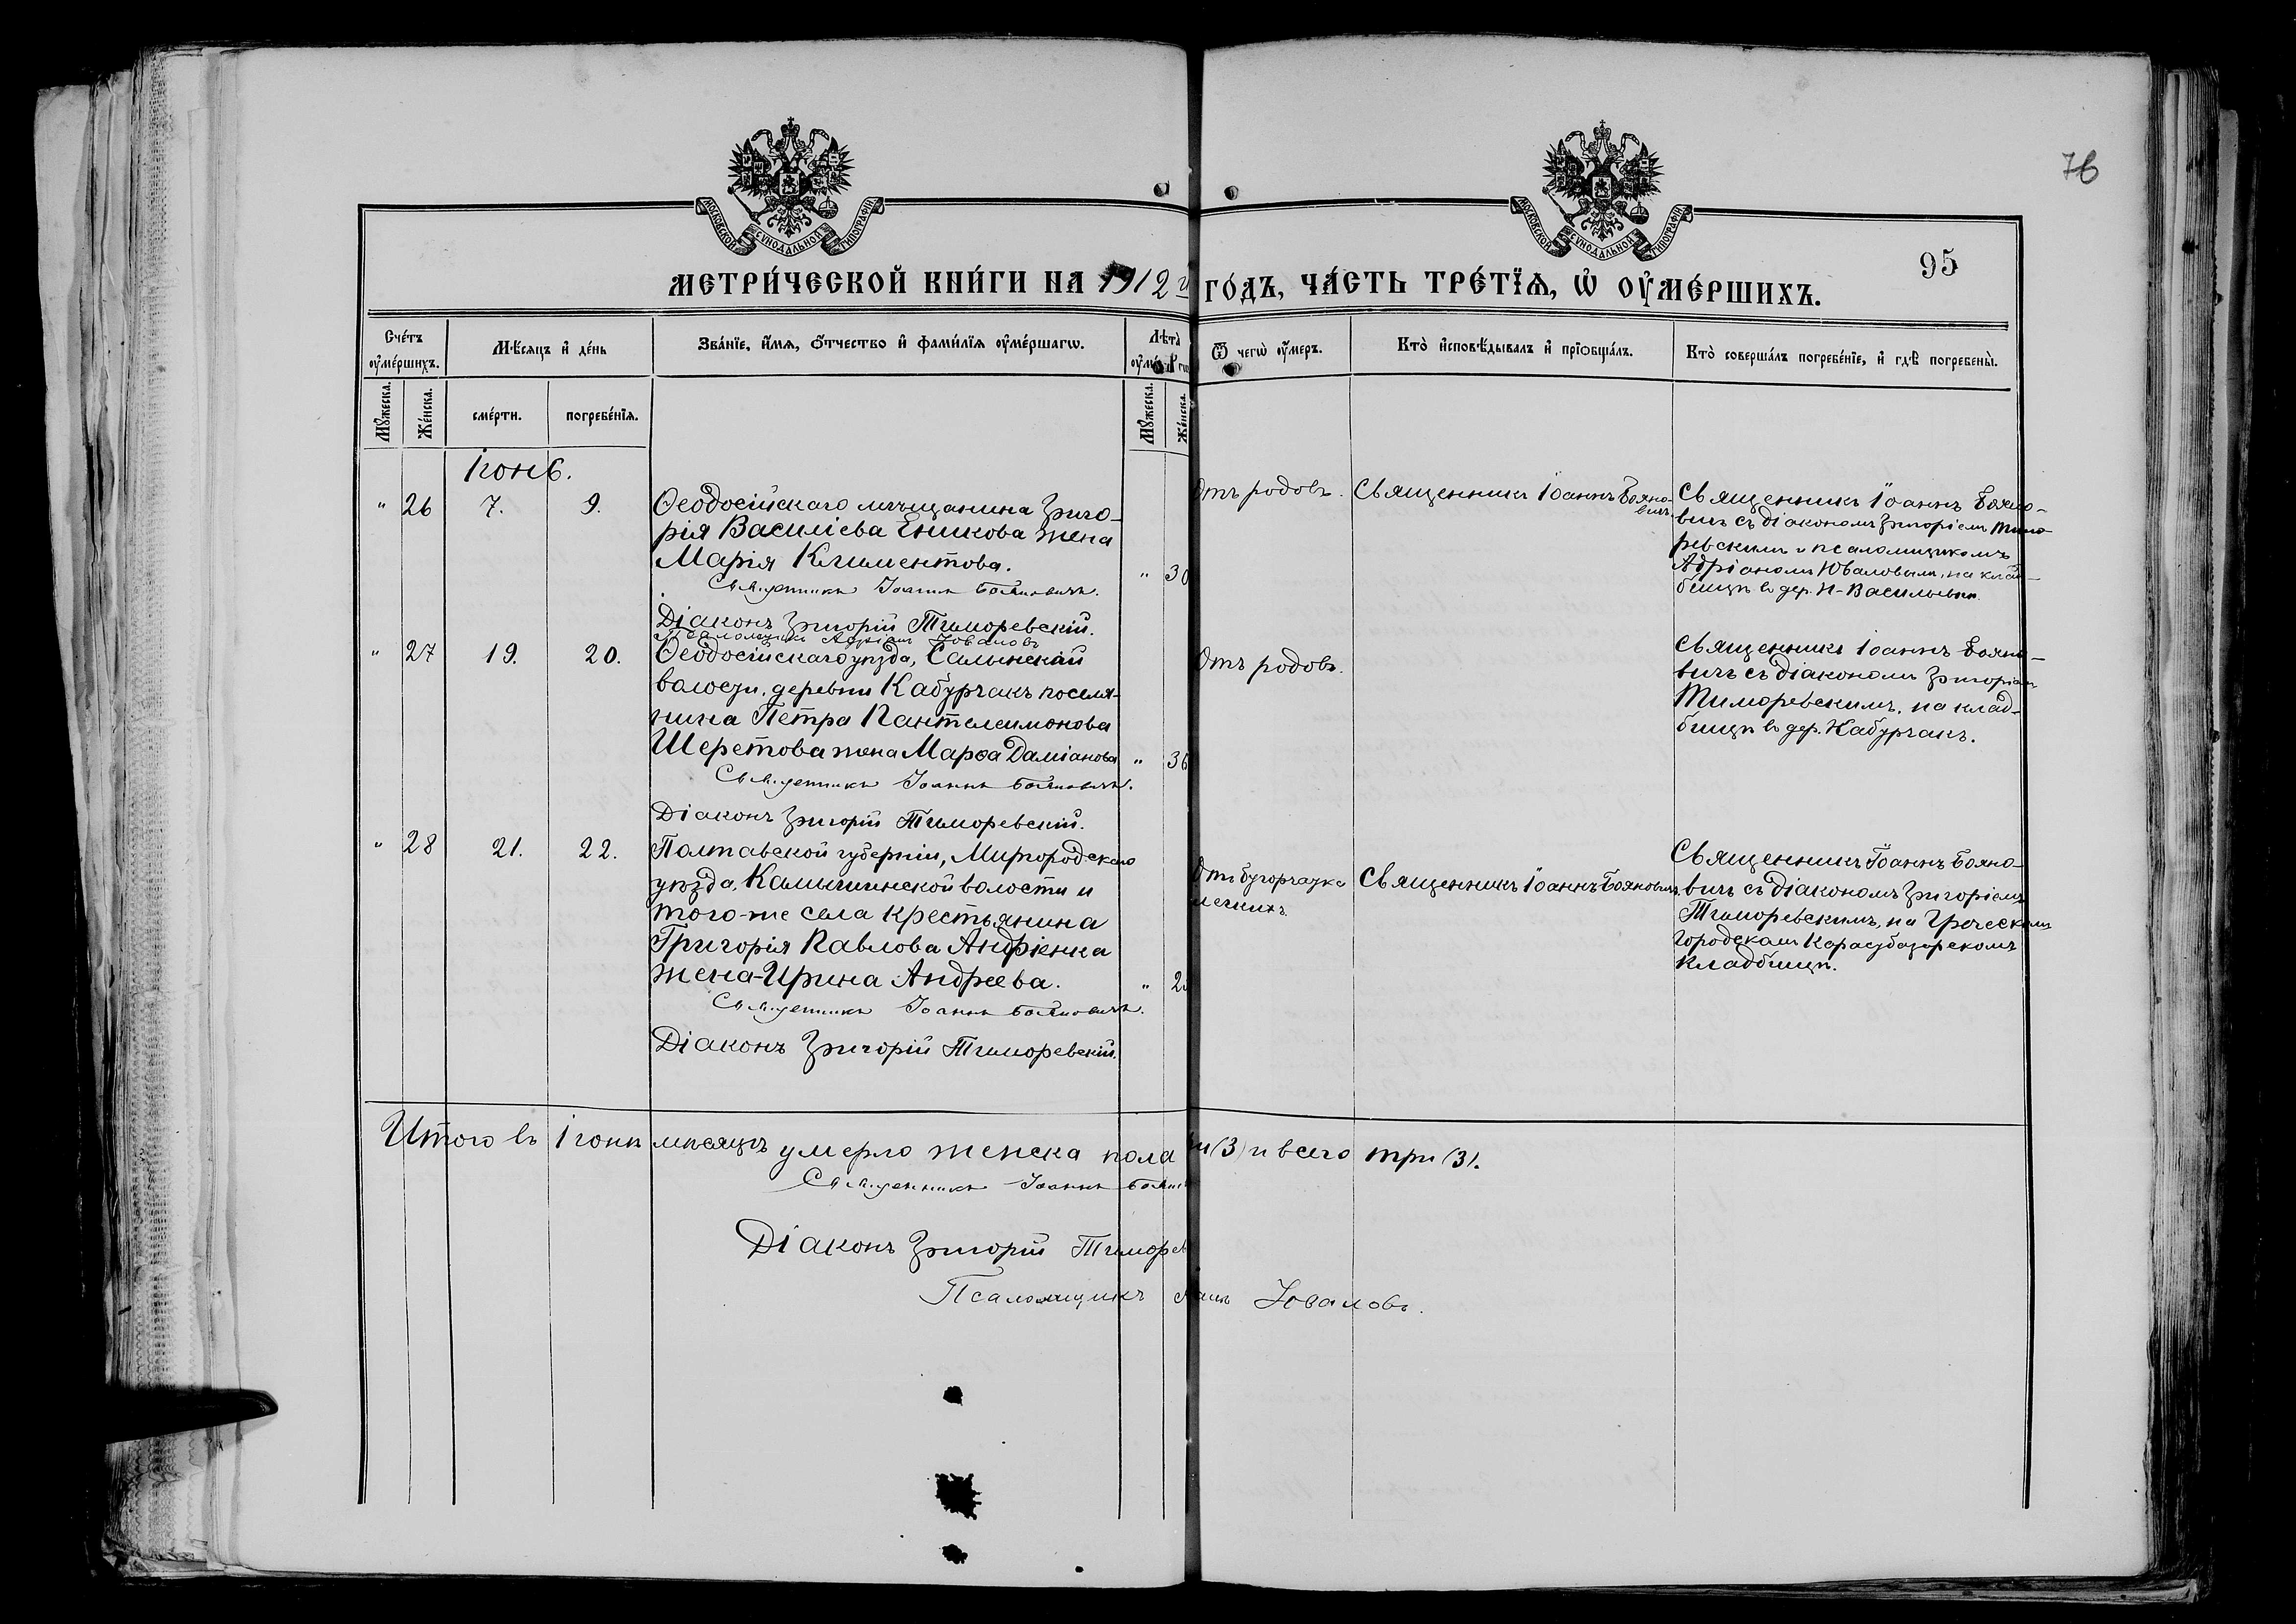 76
МОСКОВСКОЙ СѴНОДАЛЬНОЙ ТИПОГРАФІИ
МОСКОВСКОЙ СѴНОДАЛЬНОЙ ТИПОГРАФІИ
95
МЕТРИ́ЧЕСКОЙ КНИ́ГИ НА 1912 й ГО́ДЪ, ЧА́СТЬ ТРЕ́ТЇѦ, Ѡ҆ ОУ҆МЕ́РШИХЪ.
Сче́тъ оу҆ме́ршихъ.
Мѣ́сѧцъ и҆ де́нь
Зва́нїе, и҆́мѧ, ѻ҆́тчество и҆ фами́лїѧ оу҆ме́ршагѡ.
Лѣ́та
Ѿ чегѡ̀ оу҆́меръ.
Кто̀ и҆сповѣ́дывалъ и҆ прїѡбща́лъ.
Кто̀ соверша́лъ погребе́нїе, и҆ гдѣ̀ погребены̀.
Мꙋ́жеска.
Же́нска.
сме́рти.
погребе́нїѧ.
Мꙋ́жеска.
Же́нска.
Іюнь.
" 26 7. 9.
Ѳеодосійскаго мѣщанина Григо-
рія Василіева Еникова жена
Марія Климентова. " 30
Священникъ Іоаннъ Бояновичъ.
Діаконъ Григорій Тиморевскій.
Псаломщикъ Адріанъ Юваловъ
Отъ родовъ.
Священникъ Іоаннъ Бояно-
вичъ.
Священникъ Іоаннъ Бояно-
вичъ съ діакономъ Григоріемъ Тимо
ревскимъ и псаломщикомъ
Адріаномъ Юваловымъ, на клад-
бищѣ въ дер. Н-Васильевкѣ
" 27 19. 20.
Ѳеодосійскаго уѣзда, Салынской
волости, деревни Кабурчакъ поселя-
нина Петра Пантелеимонова
Шеретова жена Марѳа Даміанова " 36
Священникъ Іоаннъ Бояновичъ.
Діаконъ Григорій Тиморевскій.
Отъ родовъ.
Священникъ Іоаннъ Бояно-
вичъ съ діакономъ Григоріемъ
Тиморевскимъ, на клад-
бищѣ въ дер. Кабурчакъ.
" 28 21. 22.
Полтавской губерніи, Миргородскаго
уѣзда, Камышинской волости и
того-же села крестьянина
Григорія Павлова Андріенка
жена-Ирина Андреева. "
Священникъ Іоаннъ Бояновичъ.
Діаконъ Григорій Тиморевскій.
Отъ бугорчатки
легкихъ
Священникъ Іоаннъ Бояновичъ
Священникъ Іоаннъ Бояно-
вичъ съ діакономъ Григоріемъ
Тиморевскимъ, на Греческомъ
городскомъ Карасубазарскомъ
кладбищѣ.
Итого въ Іюнѣ мѣсяцѣ умерло женска пола три (3) и всего три (3).
Священникъ Іоаннъ
Діаконъ Григорій Тиморев
Псаломщикъ Юваловъ.